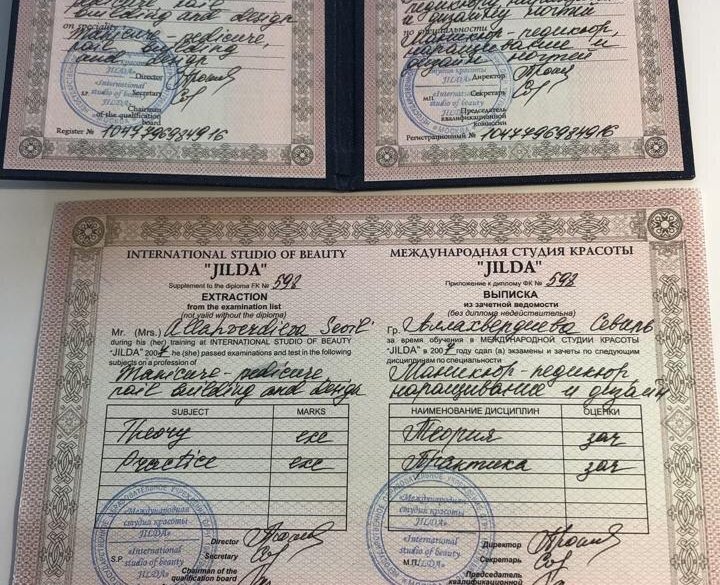 building and design
on speciality
Manicure-pedicure,
nail building
and design
Director
S.P.
Secretary
Chairman
of the qualification
board
Register № 10477969834916
и дизайну ногтей
по специальности
Маникюр-педикюр,
наращивание и
дизайн ногтей
Директор
М.П.
Секретарь
Председатель
квалификационной
комиссии
Регистрационный № 10477969834916
INTERNATIONAL STUDIO OF BEAUTY
"JILDA"
Supplement to the diploma FK № 598
EXTRACTION
from the examination list
(not valid without the diploma)
Mr. (Mrs.)
during his (her) training at INTERNATIONAL STUDIO OF BEAUTY
"JILDA" 2007 he (she) passed examinations and test in the following
subjects on a profession of
Manicure-pedicure,
nail building and design
SUBJECT MARKS
Theory exc
Practice exc
«Международная
студия красоты
JILDA»
«International
studio of beauty
JILDA»
Director
S.P.
Secretary
Chairman of the
qualification board
МЕЖДУНАРОДНАЯ СТУДИЯ КРАСОТЫ
"JILDA"
Приложение к диплому ФК № 598
ВЫПИСКА
из зачетной ведомости
(без диплома недействительна)
Гр.
за время обучения в МЕЖДУНАРОДНОЙ СТУДИИ КРАСОТЫ
"JILDA" в 2007 сдал (а) экзамены и зачеты по следующим
дисциплинам по специальности
Маникюр-педикюр
наращивание и дизайн
НАИМЕНОВАНИЕ ДИСЦИПЛИН ОЦЕНКИ
Теория зач
Практика зач
«Международная
студия красоты
JILDA»
«International
studio of beauty
JILDA»
Директор
М.П.
Секретарь
Председатель
квалификационной